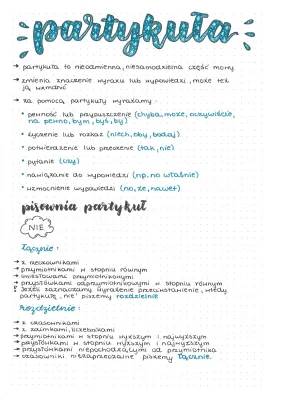 partykuła
→ partykuła to nieodmienna, niesamodzielna część mowy
→ zmienia znaczenie wyrazu lub wypowiedzi, może też
ją wzmocnić
→ za pomocą partykuły wyrażamy:
• pewność lub przypuszczenie (chyba, może, oczywiście,
na pewno, bym, byś, by)
• życzenie lub rozkaz (niech, oby, bodaj)
• potwierdzenie lub przeczenie (tak, nie)
• pytanie (czy)
• nawiązanie do wypowiedzi (np. no właśnie)
• wzmocnienie wypowiedzi (no, że, nawet)
pisownia partykuł
NIE
łącznie:
→ z rzeczownikami
→ przymiotnikami w stopniu równym
→ imiesłowami przymiotnikowymi
→ przysłówkami odprzymiotnikowymi w stopniu równym
→ Jeżeli zaznaczamy wyraźnie przeciwstawienie, wtedy
partykułę „nie" piszemy rozdzielnie
rozdzielnie:
→ z czasownikami
→ z zaimkami, liczebnikami
→ przymiotnikami w stopniu wyższym i najwyższym
→ przysłówkami w stopniu wyższym i najwyższym
→ przysłówkami niepochodzącymi od przymiotnika
→ czasowniki piszemy łącznie.